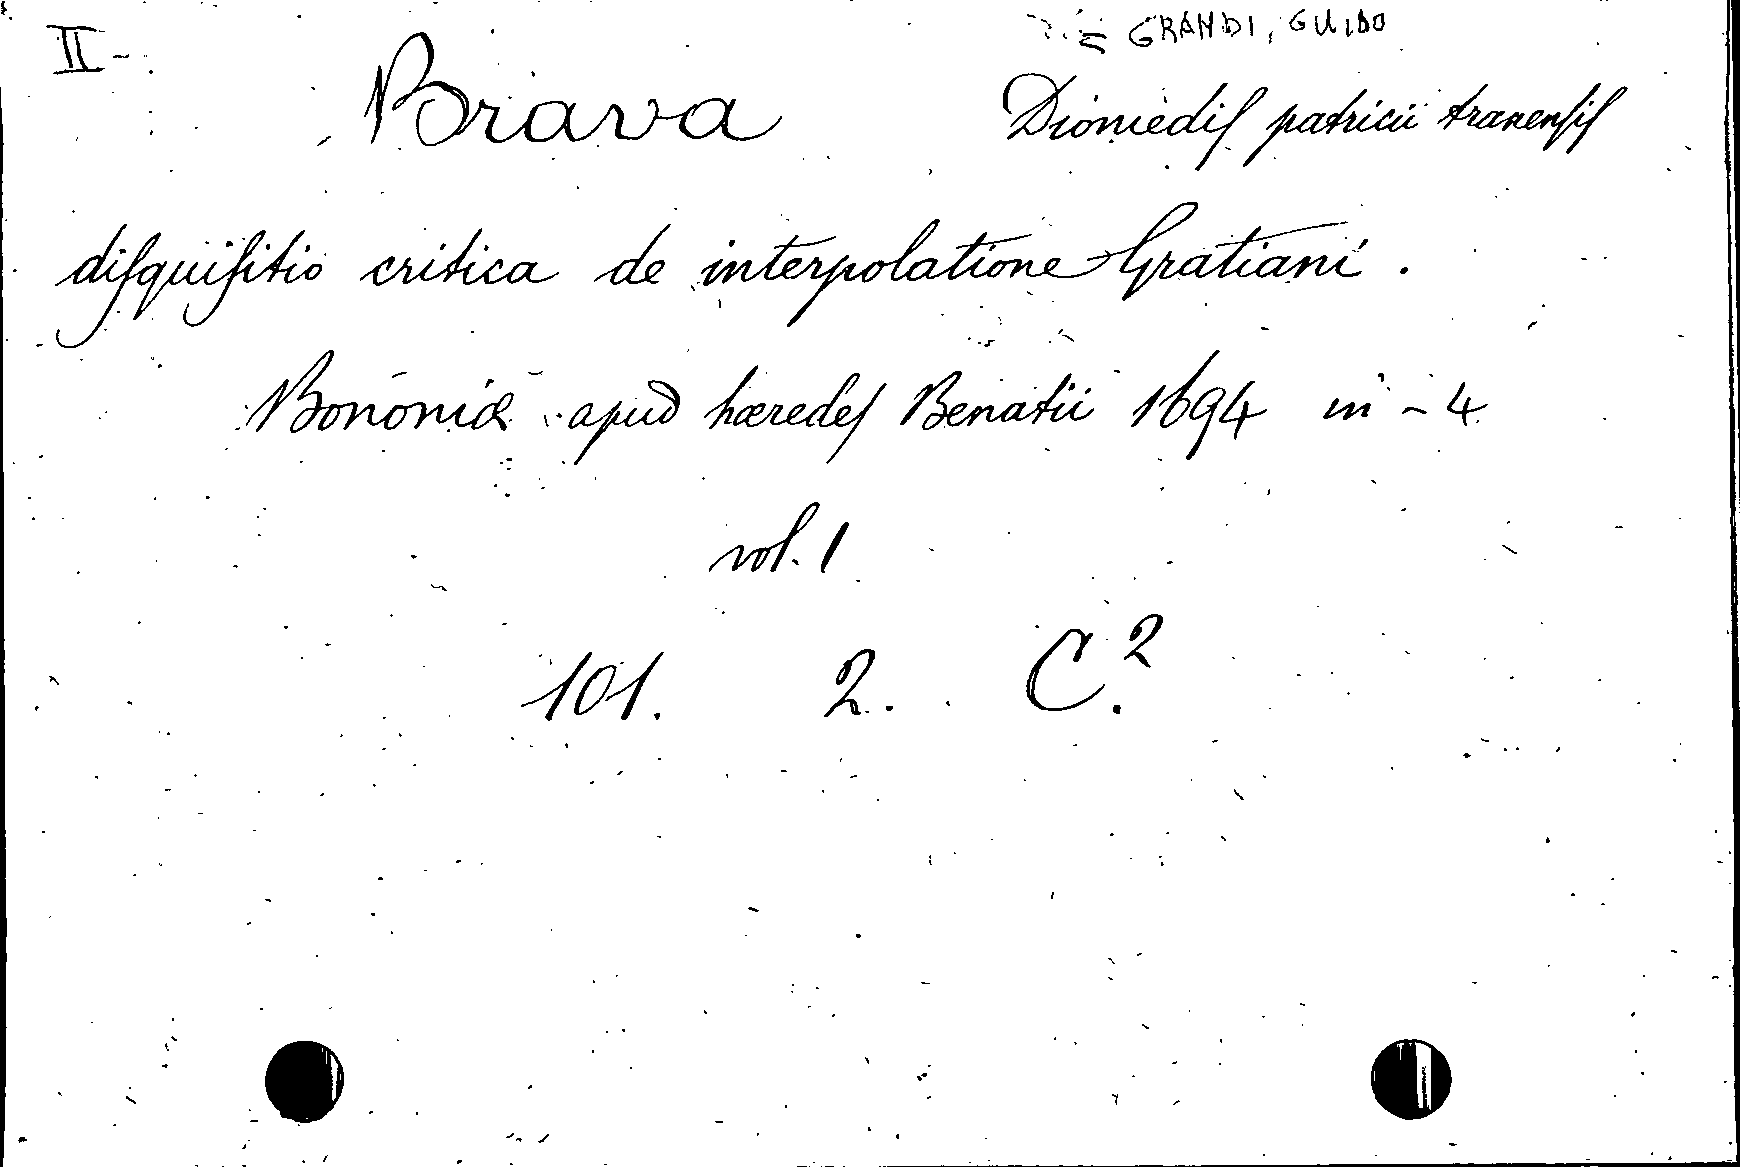 GRANDI, GUIDO
II -
Brava Diomedis patricii tranensis
disquisitio critica de interpolatione Gratiani.
Bononiæ apud hæredes Benatii 1694 in-4
vol. 1
101. 2. C.²